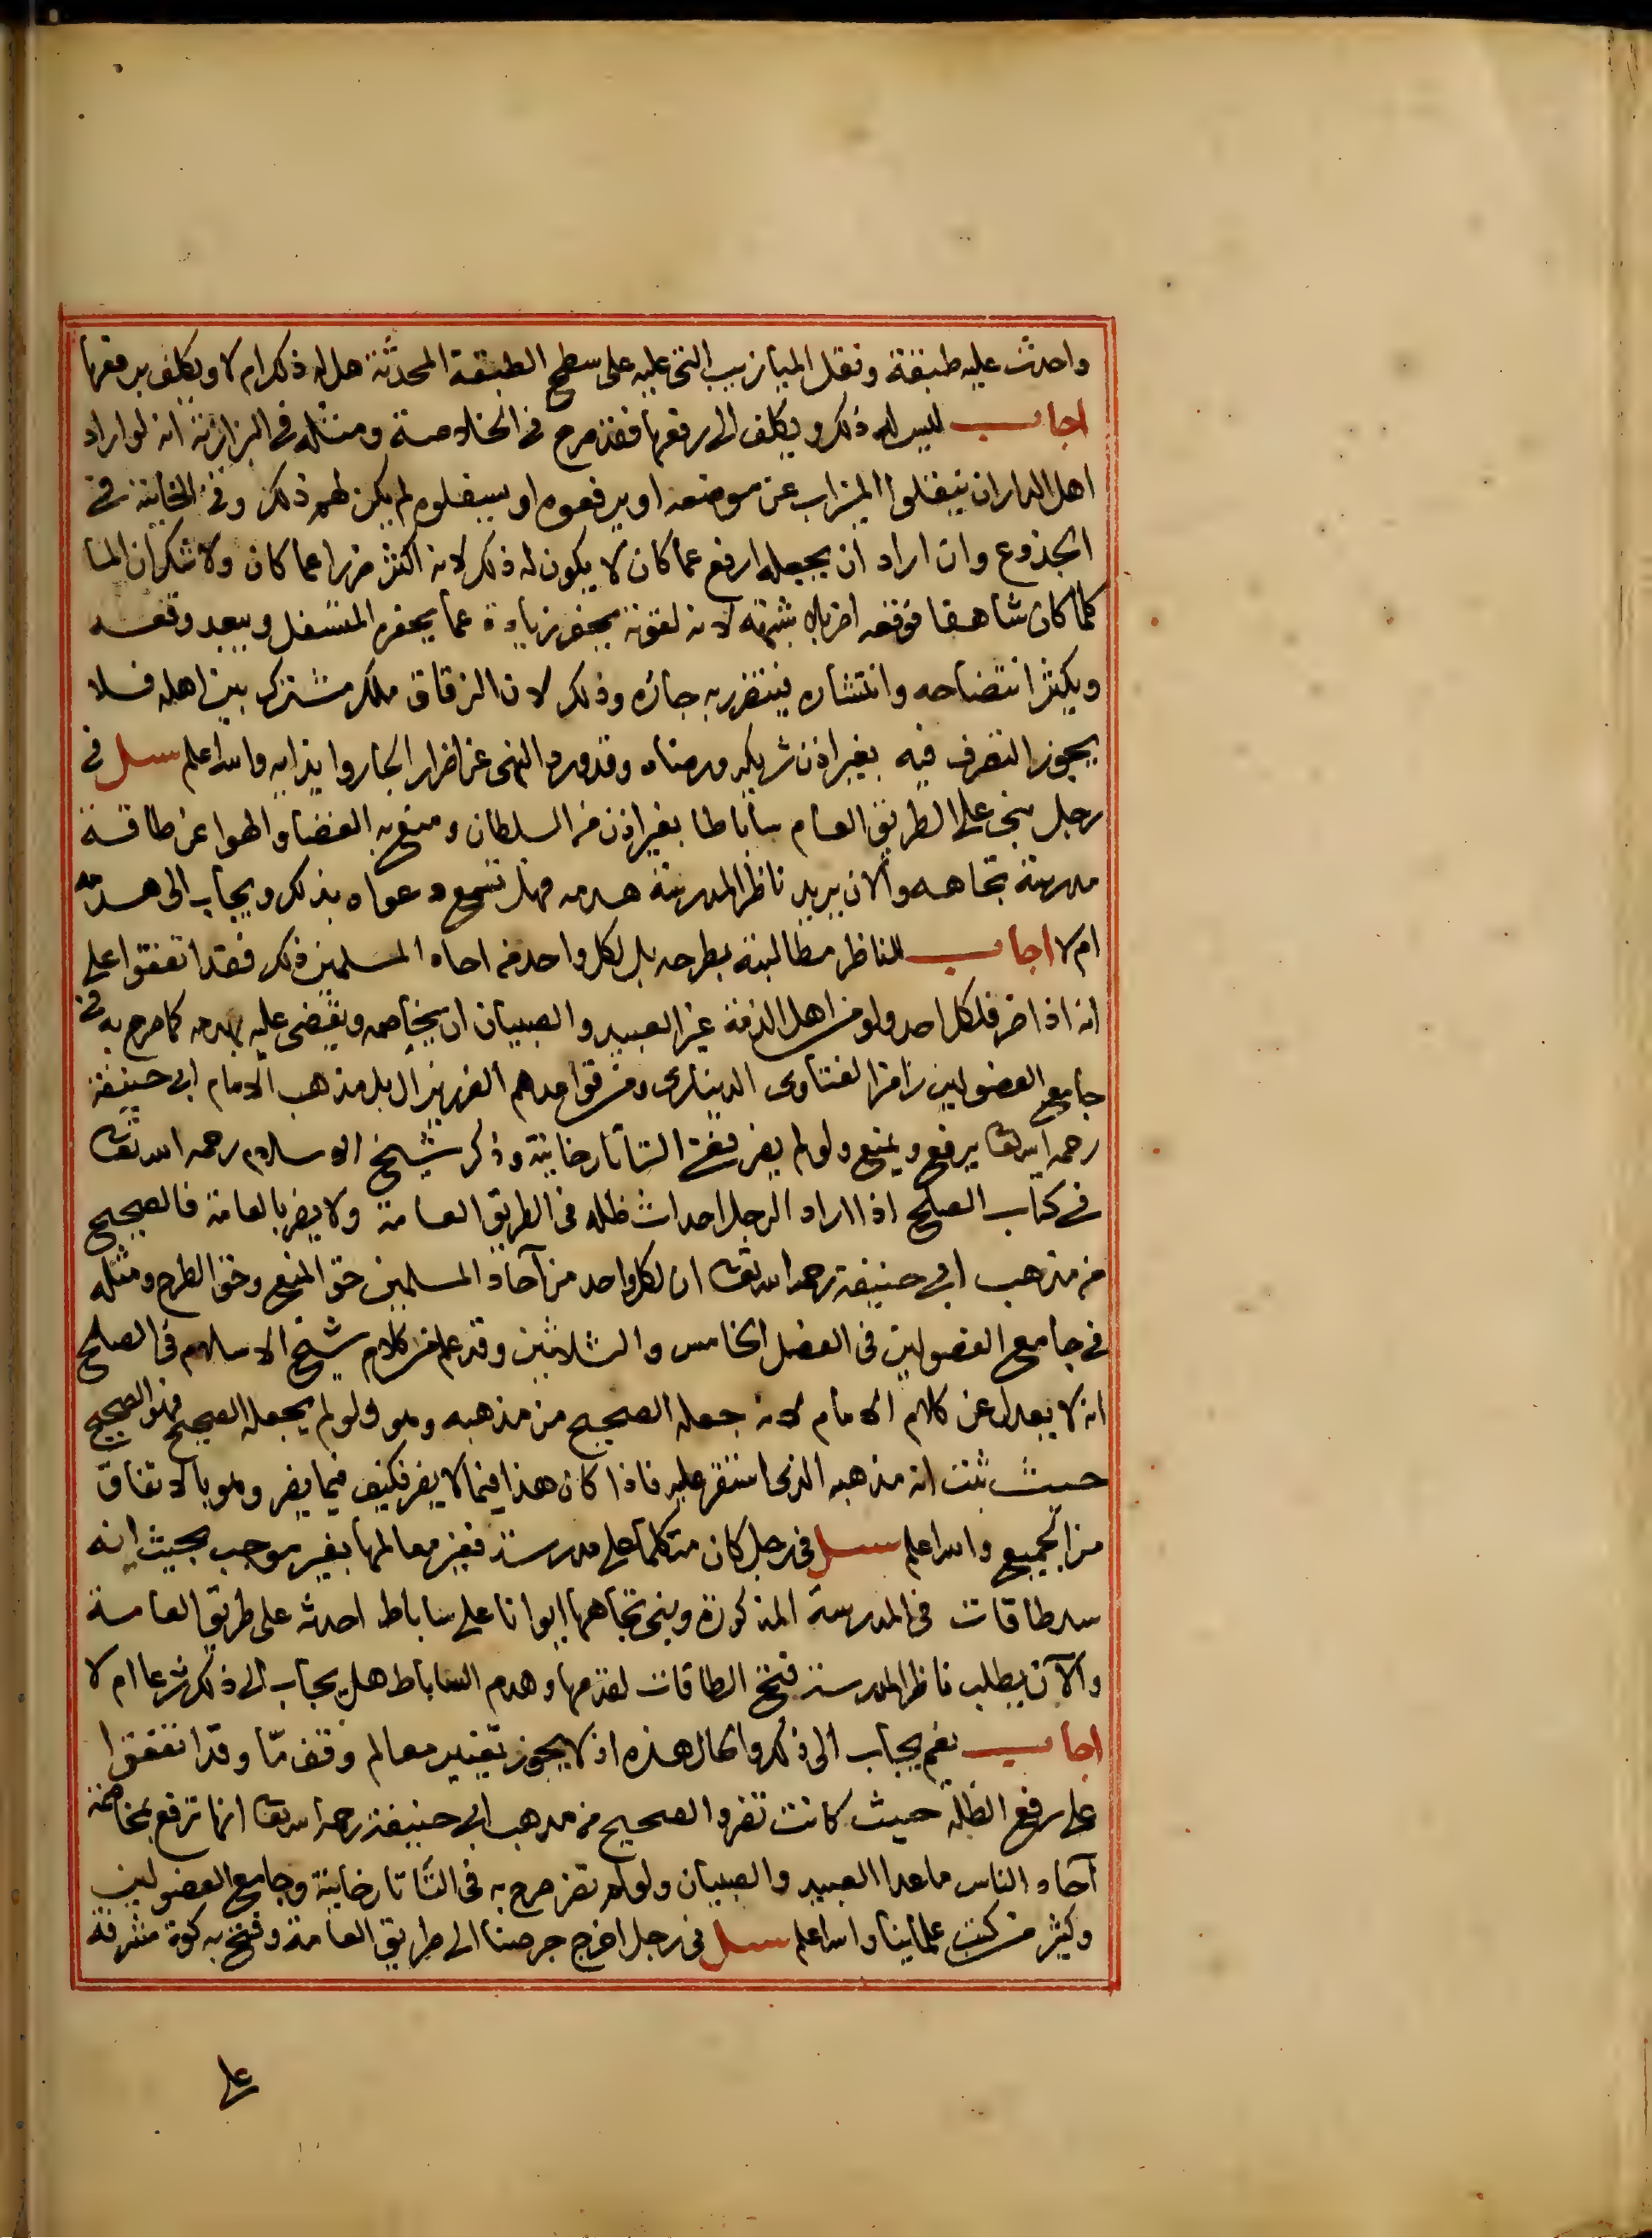 واحدث عليه طبقة ونقل الميازيب التى عليه على سطح الطبقة المحدثة هل له ذلك ام لا ويكلف برفعها
اجاب ليس له ذلك ويكلف الى رفعها فقد صرح فى الخلاصة ومثله فى البزازية انه لو اراد
اهل الدار ان ينقلوا الميزاب عن موضعه او يرفعوه او يسفلوه لم يكن لهم ذلك وفى الخانية فى
الجذوع وان اراد ان يجعله ارفع عما كان لا يكون له ذلك لانه اكثر ضررا عما كان ولا شك ان الما
كلما كان شاهقا فوقعه اضر بلا شبهة لانه لقوته يحفر زيادة عما يحفره المتسفل ويبعد وقعه
ويكثر انتضاحه وانتشاره فيتضرر به جاره وذلك لان الزقاق ملك مشترك بين اهله فلا
يجوز التصرف فيه بغير اذن شريكه ورضاه وقد ورد النهى عن اضرار الجار وايذايه والله اعلم سئل فى
رجل بنى على الطريق العام ساباطا بغير اذن من السلطان ومنع به الفضا والهوا عن طاقة
مدرسة تجاهه والان يريد ناظر المدرسة هدمه فهل تسمع دعواه بذلك ويجاب الى هدمه
ام لا اجاب للناظر مطالبته بطرحه بل لكل واحد من احاد المسلمين ذلك فقد اتفقوا على
انه اذا اضر فلكل احد ولو من اهل الذمة غير العبيد والصبيان ان يخاصمه ويقضى عليه بهدمه كما صرح به فى
جامع الفصولين رامزا لفتاوى الدينارى ومن قواعدهم الضرر يزال بل مذهب الامام ابى حنيفة
رحمه الله تعالى يرفع ويمنع ولو لم يضر ففى التاتارخانية وذكر شيخ الاسلام رحمه الله تعالى
فى كتاب الصلح اذا اراد الرجل احداث ظله فى الطريق العامة ولا يضر بالعامة فالصحيح
من مذهب ابى حنيفة رحمه الله تعالى ان لكل واحد من آحاد المسلمين حق المنع وحق الطرح ومثله
فى جامع الفصولين فى الفصل الخامس والثلاثين وقد علم من كلام شيخ الاسلام فى الصلح
انه لا يعدل عن كلام الامام لانه جعله الصحيح من مذهبه وهو ولو لم يجعله الصحيح فهو الصحيح
حيث ثبت انه مذهبه الذى استقر عليه فاذا كان هذا فيما لا يضر فكيف فيما يضر وهو بالاتفاق
من الجميع والله اعلم سئل فى رجل كان متكلما على مدرسة فغير معالمها بغير موجب بحيث انه
سد طاقات فى المدرسة المذكورة وبنى تجاهها ايوانا على ساباط احدثه على طريق العامة
والآن يطلب ناظر المدرسة فتح الطاقات لقدمها وهدم الساباط هل يجاب الى ذلك شرعا ام لا
اجاب نعم يجاب الى ذلك والحال هذه اذ لا يجوز تغيير معالم وقف ما وقد اتفقوا
على رفع الظلة حيث كانت تضر والصحيح من مذهب ابى حنيفة رحمه الله تعالى انها ترفع بمخاصمة
آحاد الناس ما عدا العبيد والصبيان ولو لم تضر صرح به فى التاتارخانية وجامع الفصولين
وكثير من كتب علماينا والله اعلم سئل فى رجل اخرج جرصنا الى طريق العامة وفتح به كوة مشرفة
على